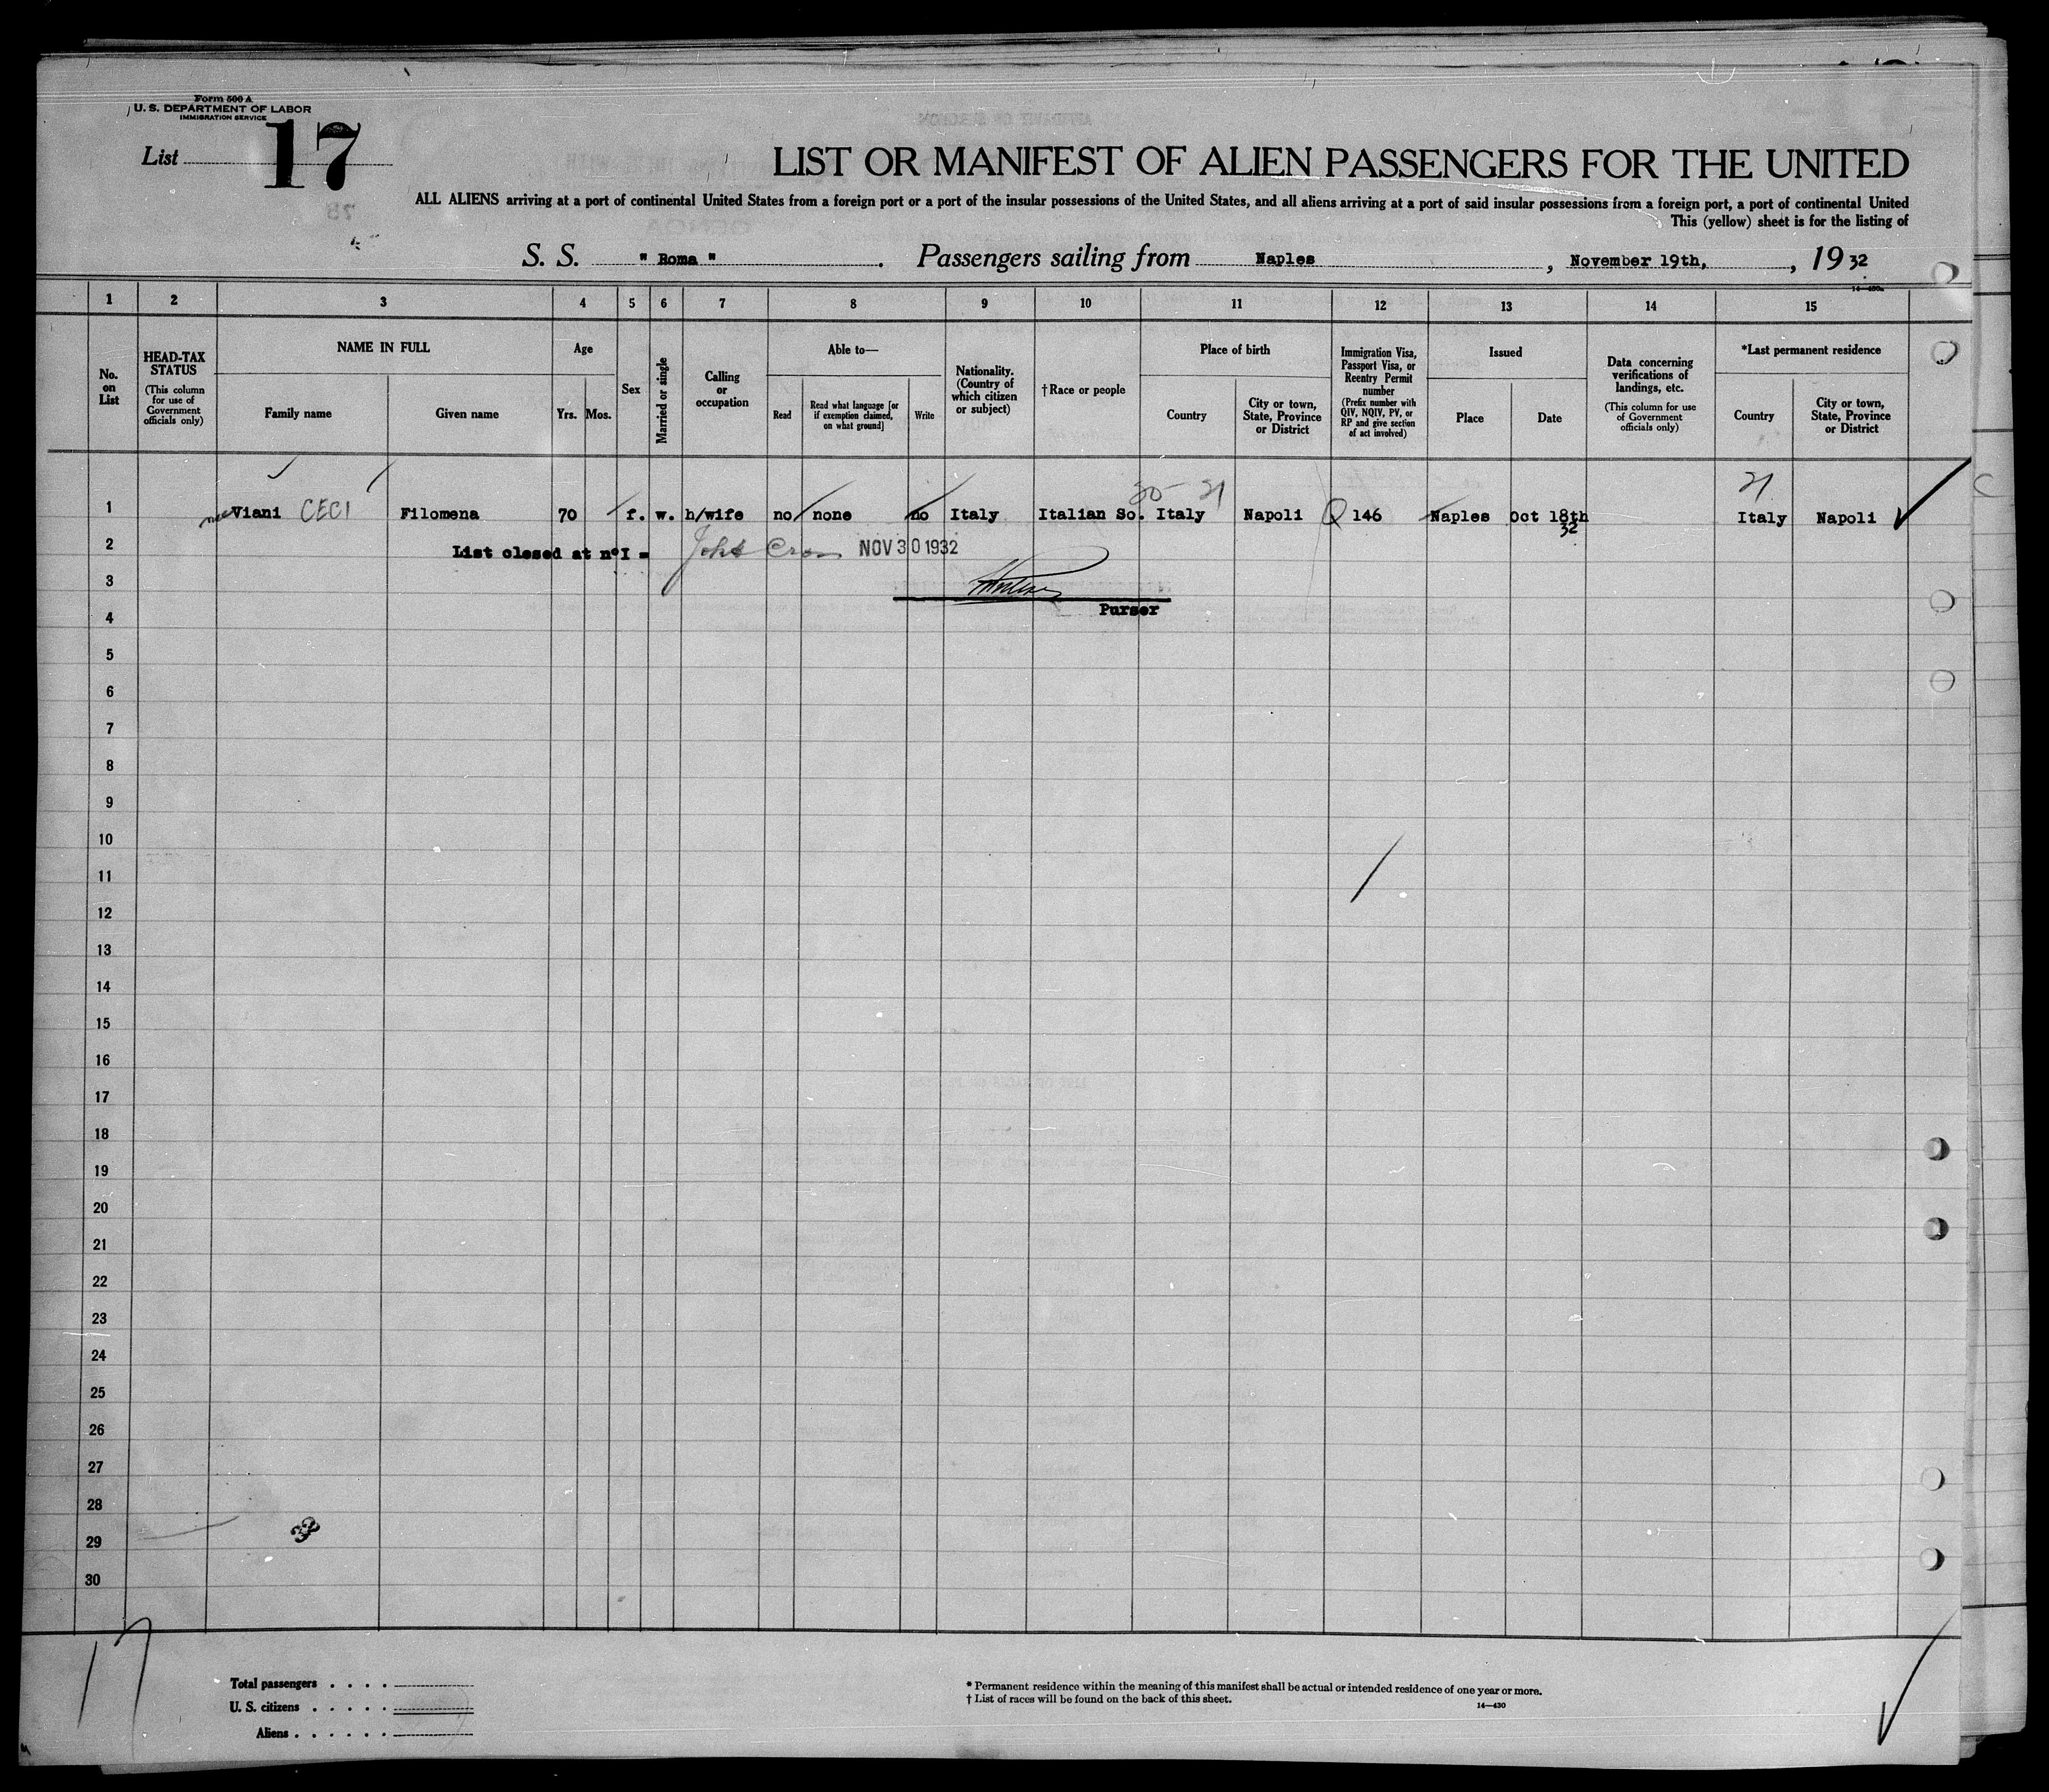 Form 500 A
U. S. DEPARTMENT OF LABOR
IMMIGRATION SERVICE
List 17
LIST OR MANIFEST OF ALIEN PASSENGERS FOR THE UNITED
ALL ALIENS arriving at a port of continental United States from a foreign port or a port of the insular possessions of the United States, and all aliens arriving at a port of said insular possessions from a foreign port, a port of continental United
This (yellow) sheet is for the listing of
S. S. " Roma " . Passengers sailing from Naples , November 19th, , 19 32
14—430a
1 2 3 4 5 6 7 8 9 10 11 12 13 14 15
No. on List
HEAD-TAX STATUS (This column for use of Government officials only)
NAME IN FULL
Family name Given name
Age
Yrs. Mos.
Sex
Married or single
Calling or occupation
Able to—
Read Read what language [or if exemption claimed, on what ground] Write
Nationality. (Country of which citizen or subject)
†Race or people
Place of birth
Country City or town, State, Province or District
Immigration Visa, Passport Visa, or Reentry Permit number (Prefix number with QIV, NQIV, PV, or RP and give section of act involved)
Issued
Place Date
Data concerning verifications of landings, etc. (This column for use of Government officials only)
*Last permanent residence
Country City or town, State, Province or District
1 nee Viani CECI Filomena 70 f. w. h/wife no none no Italy Italian So. Italy Napoli Q 146 Naples Oct 18th 32 Italy Napoli
2 List closed at n°I = NOV 30 1932
3
Purser
4
5
6
7
8
9
10
11
12
13
14
15
16
17
18
19
20
21
22
23
24
25
26
27
28
29
30
33
17
Total passengers . . . .
U. S. citizens . . . . .
Aliens . . . . . .
* Permanent residence within the meaning of this manifest shall be actual or intended residence of one year or more.
† List of races will be found on the back of this sheet.
14—430